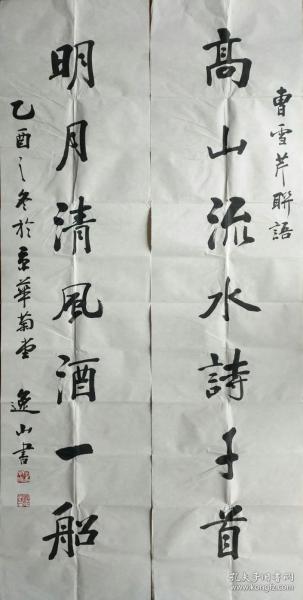 曹雪芹聯語
高山流水詩千首
明月清風酒一船
乙酉之冬於京華菊堂 逸山書
孔夫子旧书网